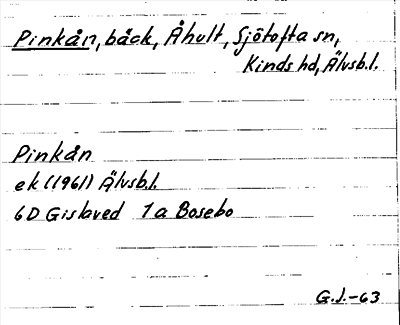 Pinkån, bäck, Åhult, Sjötofta sn,
Kinds hd, Älvsb.l.
Pinkån
ek (1961) Älvsb.l.
6D Gislaved 1a Bosebo
G.J.-63